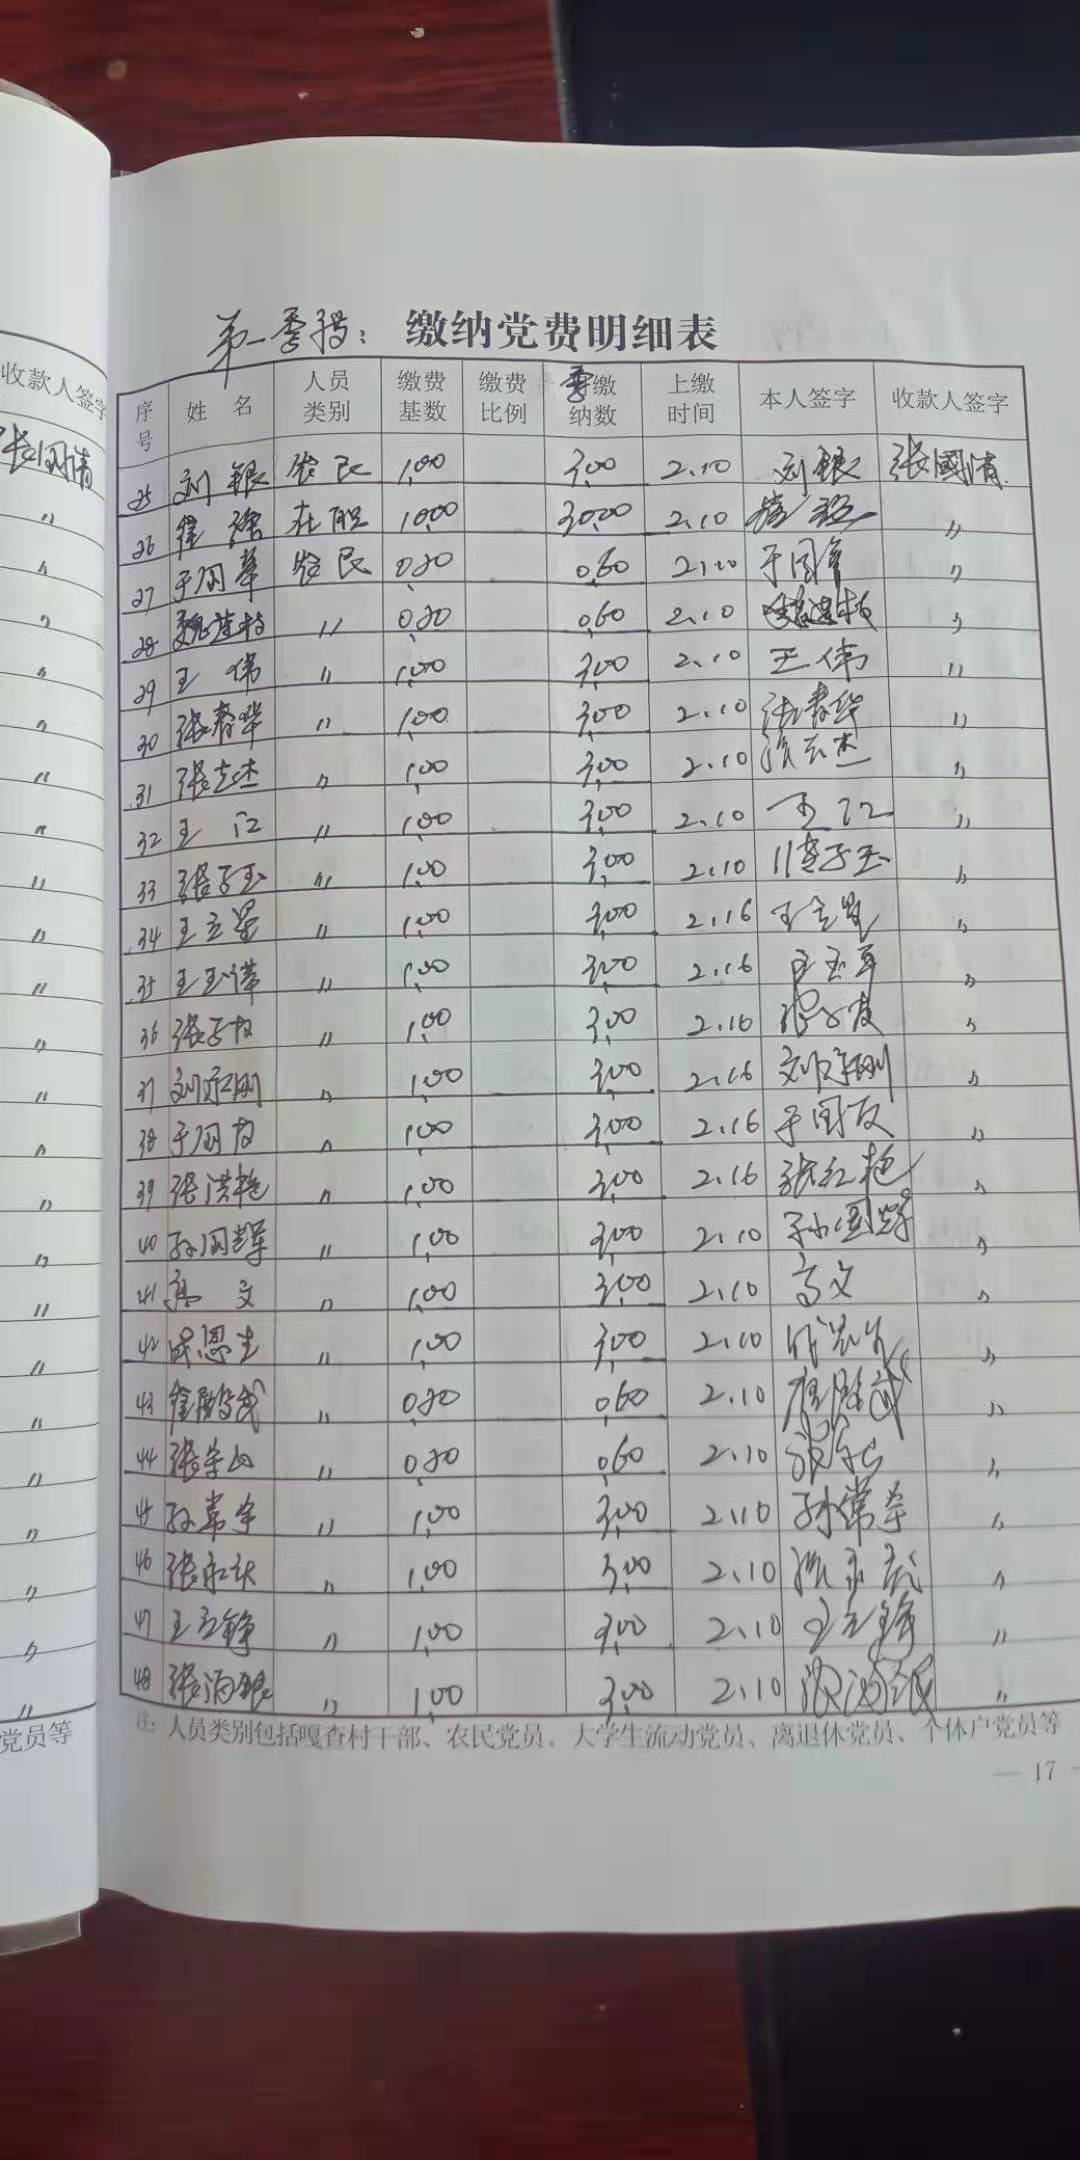 第一季度：缴纳党费明细表
收款人签字
张国清
序号 姓名 人员类别 缴费基数 缴费比例 季缴纳数 上缴时间 本人签字 收款人签字
25 刘银 农民 1.00 3.00 2.10 刘银 张國清
26 在职 10.00 30.00 2.10 〃
27 于国军 农民 0.20 0.60 2.10 于国军 〃
28 〃 0.20 0.60 2.10 〃
29 王伟 〃 1.00 3.00 2.10 王伟 〃
30 张春华 〃 1.00 3.00 2.10 张春华 〃
31 张志杰 〃 1.00 3.00 2.10 张志杰 〃
32 王江 〃 1.00 3.00 2.10 王江 〃
33 张子玉 〃 1.00 3.00 2.10 张子玉 〃
34 王立星 〃 1.00 3.00 2.16 王立星 〃
35 〃 1.00 3.00 2.16 〃
36 张子友 〃 1.00 3.00 2.16 张子友 〃
37 〃 1.00 3.00 2.16 〃
38 于国友 〃 1.00 3.00 2.16 于国友 〃
39 张洪艳 〃 1.00 3.00 2.16 张红艳 〃
40 孙国辉 〃 1.00 3.00 2.10 孙国辉 〃
41 高文 〃 1.00 3.00 2.10 高文 〃
42 〃 1.00 3.00 2.10 〃
43 〃 0.20 0.60 2.10 〃
44 〃 0.20 0.60 2.10 〃
45 孙常宇 〃 1.00 3.00 2.10 孙常宇 〃
46 〃 1.00 3.00 2.10 〃
47 王立锋 〃 1.00 3.00 2.10 王立锋 〃
48 〃 1.00 3.00 2.10 〃
党员等
注：人员类别包括嘎查村干部、农民党员、大学生流动党员、离退休党员、个体户党员等
— 17